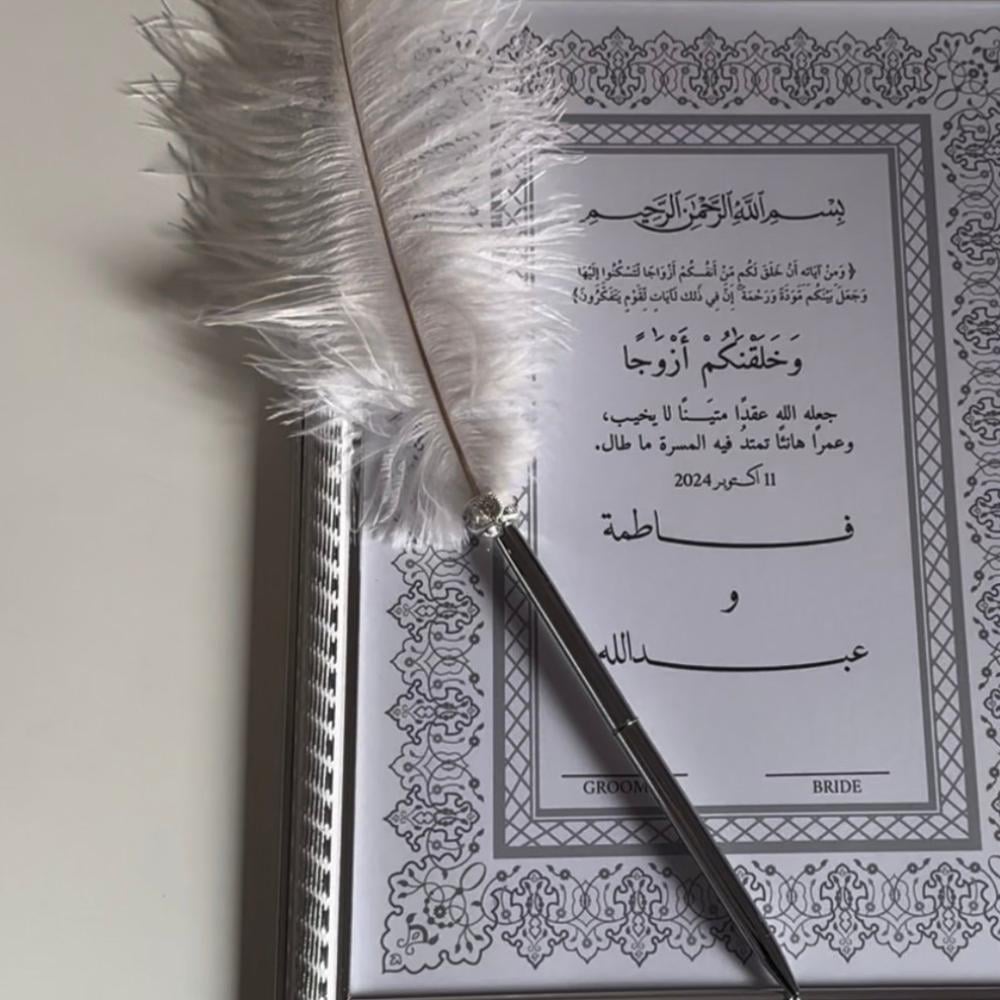 بِسْمِ اللَّهِ الرَّحْمَٰنِ الرَّحِيمِ
﴿ وَمِنْ آيَاتِهِ أَنْ خَلَقَ لَكُم مِّنْ أَنفُسِكُمْ أَزْوَاجًا لِّتَسْكُنُوا إِلَيْهَا
وَجَعَلَ بَيْنَكُم مَّوَدَّةً وَرَحْمَةً إِنَّ فِي ذَٰلِكَ لَآيَاتٍ لِّقَوْمٍ يَتَفَكَّرُونَ﴾
وَخَلَقْنَٰكُمْ أَزْوَٰجًا
جعله الله عقدًا متيَنًا لا يخيب،
وعمرًا هانئًا تمتدُ فيه المسرة ما طال.
11 أكتوبر 2024
فاطمة
و
عبدالله
GROOM
BRIDE